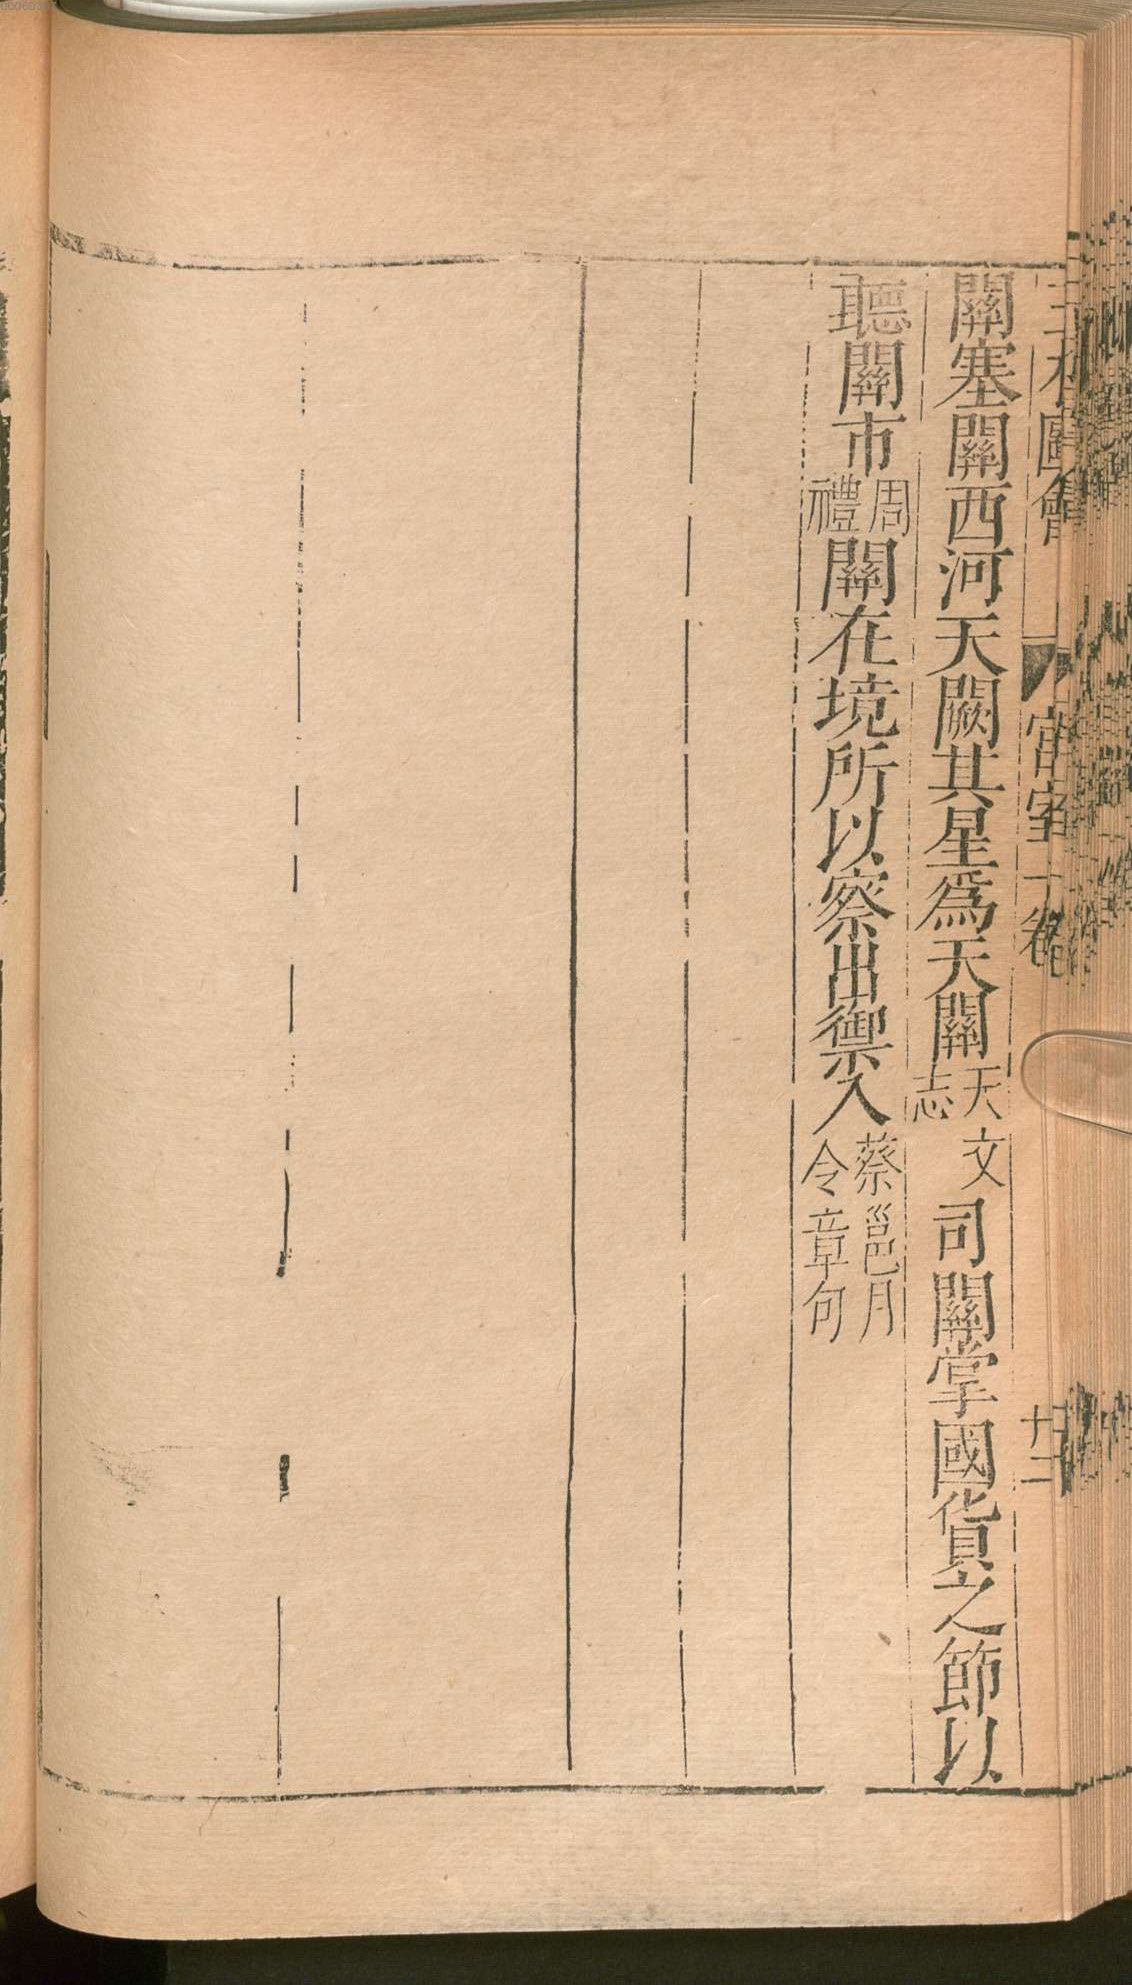 三才圖會 宮室一卷 十二
關塞關西河天闕其星爲天關天文志司關掌國貨之節以
聽關市周禮關在境所以察出禦入蔡邕月令章句